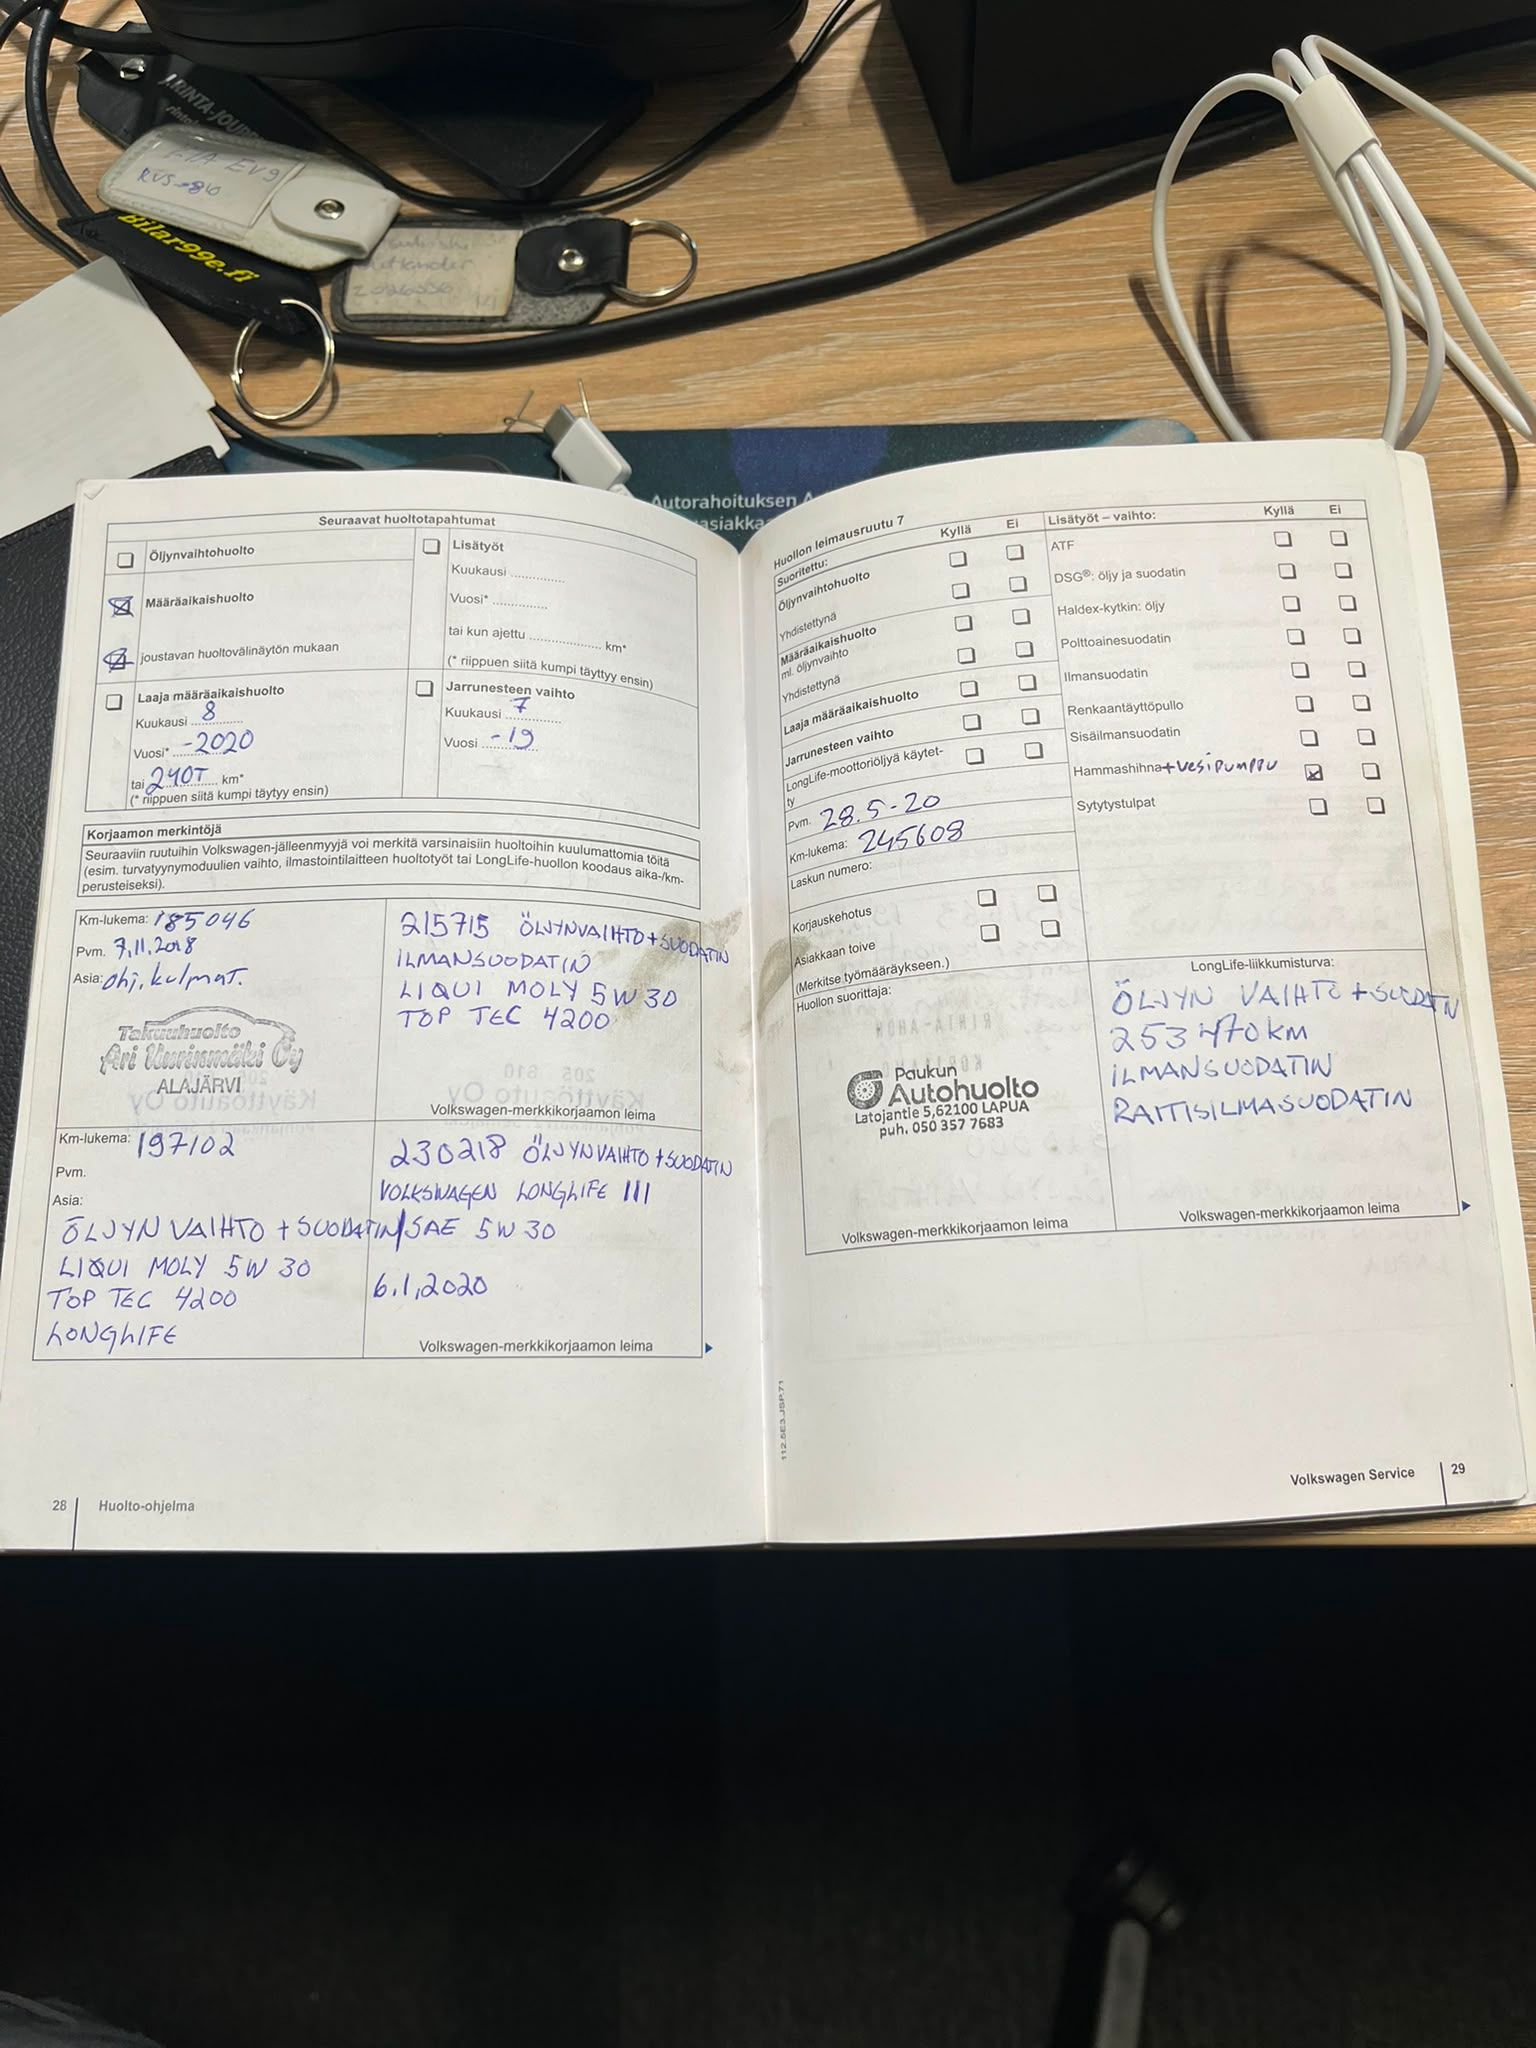 ARINTA-JOUPPI
KIA EV9
Bilar99e.fi
Autorahoituksen
asiakka
Seuraavat huoltotapahtumat
Öljynvaihtohuolto
Määräaikaishuolto
joustavan huoltovälinäytön mukaan
Lisätyöt
Kuukausi
Vuosi*
tai kun ajettu km*
(* riippuen siitä kumpi täyttyy ensin)
Laaja määräaikaishuolto
Kuukausi 8
Vuosi* -2020
tai 240T km*
(* riippuen siitä kumpi täytyy ensin)
Jarrunesteen vaihto
Kuukausi 7
Vuosi -19
Korjaamon merkintöjä
Seuraaviin ruutuihin Volkswagen-jälleenmyyjä voi merkitä varsinaisiin huoltoihin kuulumattomia töitä
(esim. turvatyynymoduulien vaihto, ilmastointilaitteen huoltotyöt tai LongLife-huollon koodaus aika-/km-
perusteiseksi).
Km-lukema: 185046
Pvm. 7.11.2018
Asia: ohj. kulmat.
Takuuhuolto
Ari Uurinmäki Oy
ALAJÄRVI
215715 ÖLJYNVAIHTO+SUODATIN
ILMANSUODATIN
LIQUI MOLY 5W30
TOP TEC 4200
Volkswagen-merkkikorjaamon leima
Km-lukema: 197102
Pvm.
Asia:
ÖLJYN VAIHTO + SUODATIN
LIQUI MOLY 5W30
TOP TEC 4200
LONGLIFE
230218 ÖLJYNVAIHTO+SUODATIN
VOLKSWAGEN LONGLIFE III
SAE 5W30
6.1.2020
Volkswagen-merkkikorjaamon leima
28 Huolto-ohjelma
Huollon leimausruutu 7
Suoritettu: Kyllä Ei
Öljynvaihtohuolto
Yhdistettynä
Määräaikaishuolto
ml. öljynvaihto
Yhdistettynä
Laaja määräaikaishuolto
Jarrunesteen vaihto
LongLife-moottoriöljyä käytet-
ty
Pvm. 28.5-20
Km-lukema: 245608
Laskun numero:
Korjauskehotus
Asiakkaan toive
(Merkitse työmääräykseen.)
Lisätyöt – vaihto: Kyllä Ei
ATF
DSG®: öljy ja suodatin
Haldex-kytkin: öljy
Polttoainesuodatin
Ilmansuodatin
Renkaantäyttöpullo
Sisäilmansuodatin
Hammashihna+vesipumppu
Sytytystulpat
Huollon suorittaja:
Paukun
Autohuolto
Latojantie 5,62100 LAPUA
puh. 050 357 7683
Volkswagen-merkkikorjaamon leima
LongLife-liikkumisturva:
ÖLJYN VAIHTO +SUODATIN
253470KM
ILMANSUODATIN
RAITISILMASUODATIN
Volkswagen-merkkikorjaamon leima
112.5E3.JSP.71
Volkswagen Service 29